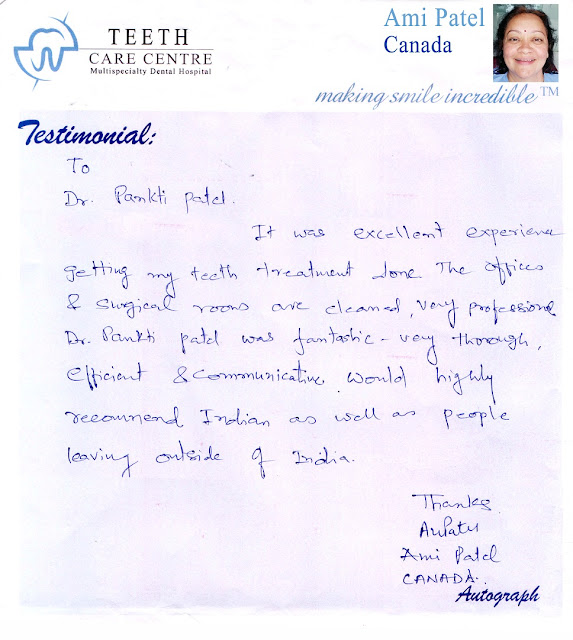 TEETH
CARE CENTRE
Multispecialty Dental Hospital
Ami Patel
Canada
making smile incredible™
Testimonial:
To
Dr. Pankti Patel.
It was excellent experience
getting my teeth treatment done. The offices
& surgical rooms are cleaned, very professional
Dr. Pankti patel was fantastic - very thorough,
efficient & communicative. would highly
recommend Indian as well as people
leaving outside of India.
Thanks
Ami Patel
CANADA.
Autograph